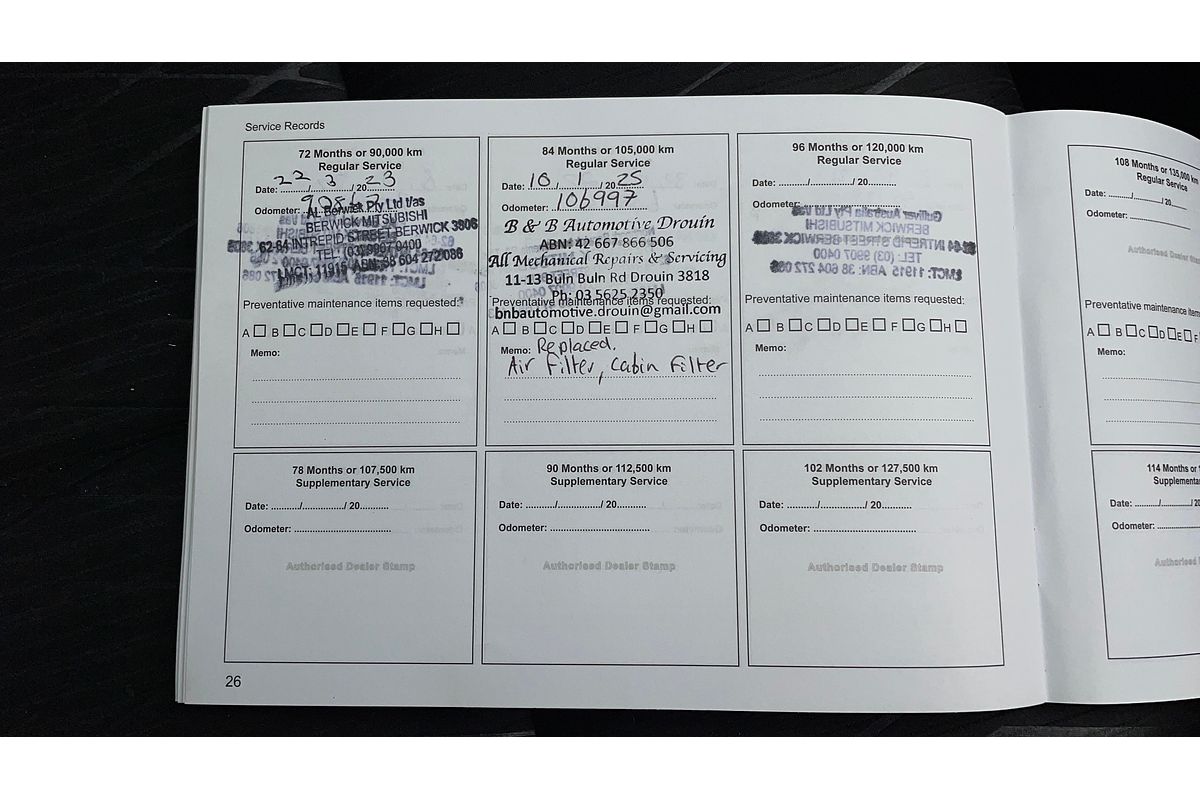 Service Records
72 Months or 90,000 km
Regular Service
Date: 22/3/2023
Odometer:
AL Berwick Pty Ltd t/as
BERWICK MITSUBISHI
62-84 INTREPID STREET BERWICK 3806
TEL: (03) 9907 0400
LMCT: 11915 ABN: 38 604 272 086
Preventative maintenance items requested:
A B C D E F G H
Memo:
84 Months or 105,000 km
Regular Service
Date: 10/1/2025
Odometer: 106997
B & B Automotive Drouin
ABN: 42 667 866 506
All Mechanical Repairs & Servicing
11-13 Buln Buln Rd Drouin 3818
Ph: 03 5625 2350
Preventative maintenance items requested:
bnbautomotive.drouin@gmail.com
A B C D E F G H
Memo: Replaced.
Air Filter, Cabin Filter
96 Months or 120,000 km
Regular Service
Date: ........../................/ 20..........
Odometer:
Gulliver Australia Pty Ltd t/as
BERWICK MITSUBISHI
62-84 INTREPID STREET BERWICK 3806
TEL: (03) 9907 0400
LMCT: 11915 ABN: 38 604 272 086
Preventative maintenance items requested:
A B C D E F G H
Memo:
108 Months or 135,000 km
Regular Service
Date: ........../................/ 20
Odometer:
Authorised Dealer
Preventative maintenance items
A B C D E F
Memo:
78 Months or 107,500 km
Supplementary Service
Date: ........../................/ 20..........
Odometer:
Authorised Dealer Stamp
90 Months or 112,500 km
Supplementary Service
Date: ........../................/ 20..........
Odometer:
Authorised Dealer Stamp
102 Months or 127,500 km
Supplementary Service
Date: ........../................/ 20..........
Odometer:
Authorised Dealer Stamp
114 Months or
Supplementa
Date: ........../................/ 20
Odometer:
Authorised
26